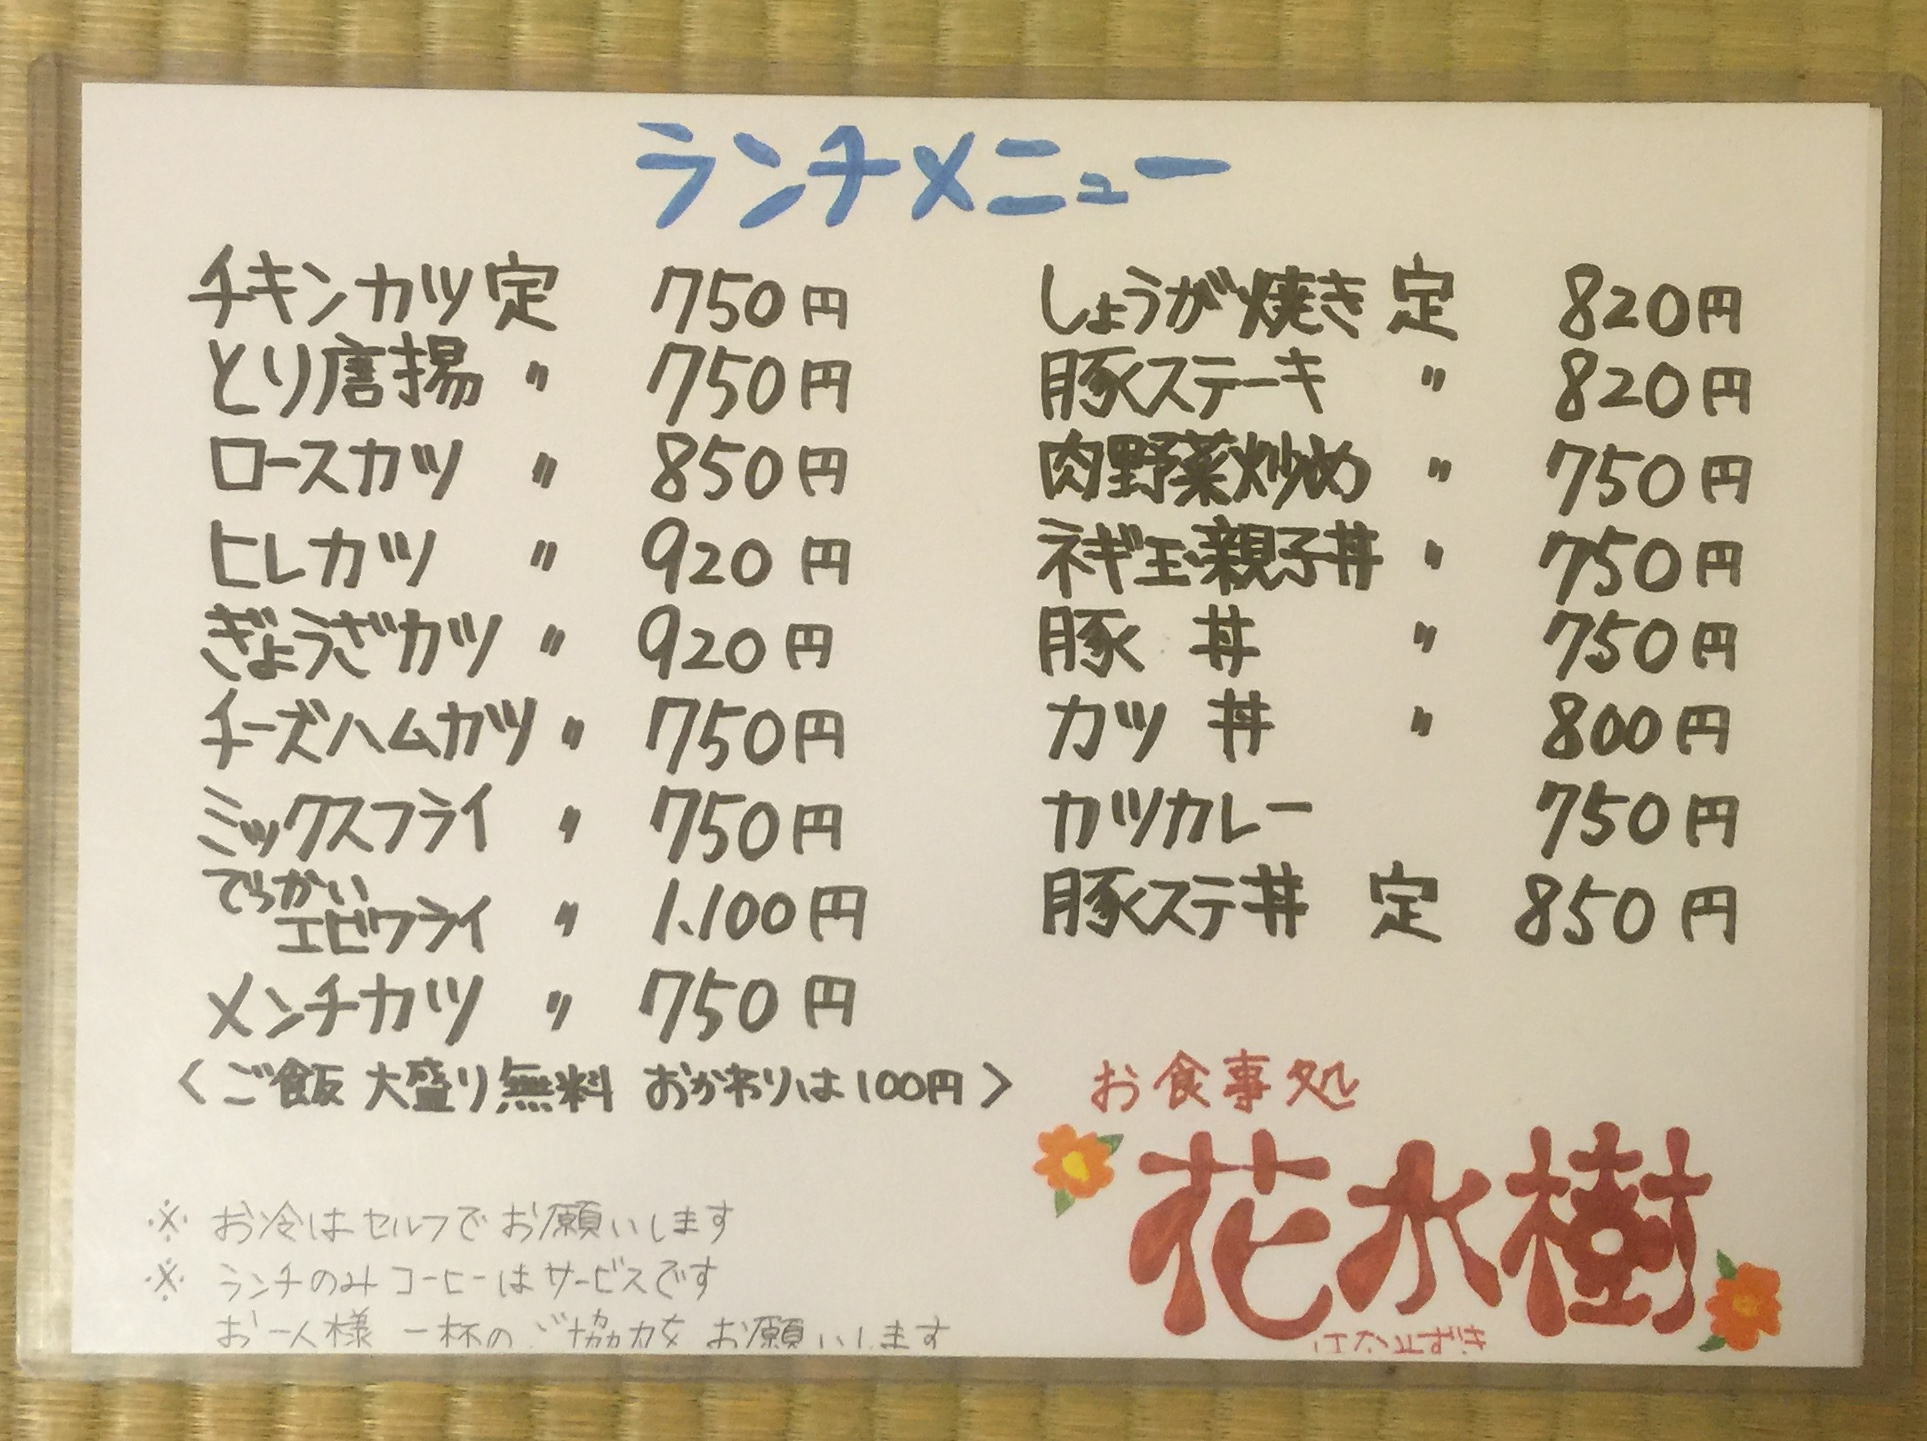 ランチメニュー
チキンカツ定 750円
とり唐揚 〃 750円
ロースカツ 〃 850円
ヒレカツ 〃 920円
ぎょうざカツ 〃 920円
チーズハムカツ 〃 750円
ミックスフライ 〃 750円
でっかい
エビフライ 〃 1,100円
メンチカツ 〃 750円
〈ご飯 大盛り無料 おかわりは100円〉
しょうが焼き 定 820円
豚ステーキ 〃 820円
肉野菜炒め 〃 750円
ネギ玉・親子丼 〃 750円
豚 丼 〃 750円
カツ 丼 〃 800円
カツカレー 750円
豚ステ丼 定 850円
お食事処
花水樹
はなみずき
※ お冷はセルフでお願いします
※ ランチのみコーヒーはサービスです
お一人様 一杯のご協力をお願いします